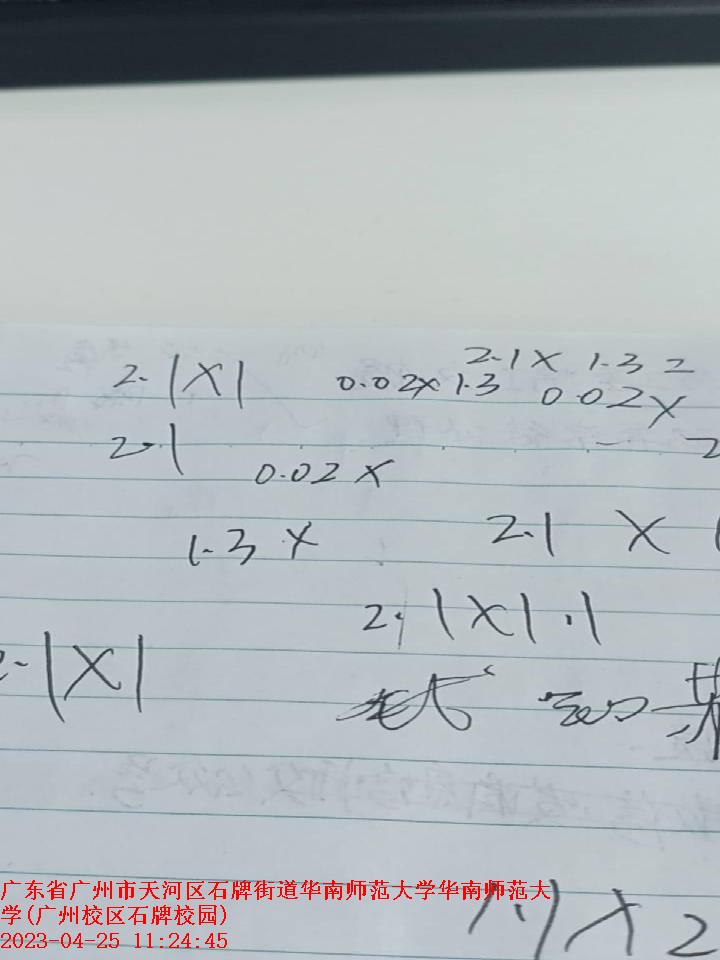 2.1×1.3=
2.1×1 0.02×1.3 0.02×
2.1
0.02×
1.3× 2.1×
2.1×1.1
2.1×1
1.1×2
广东省广州市天河区石牌街道华南师范大学华南师范大
学(广州校区石牌校园)
2023-04-25 11:24:45